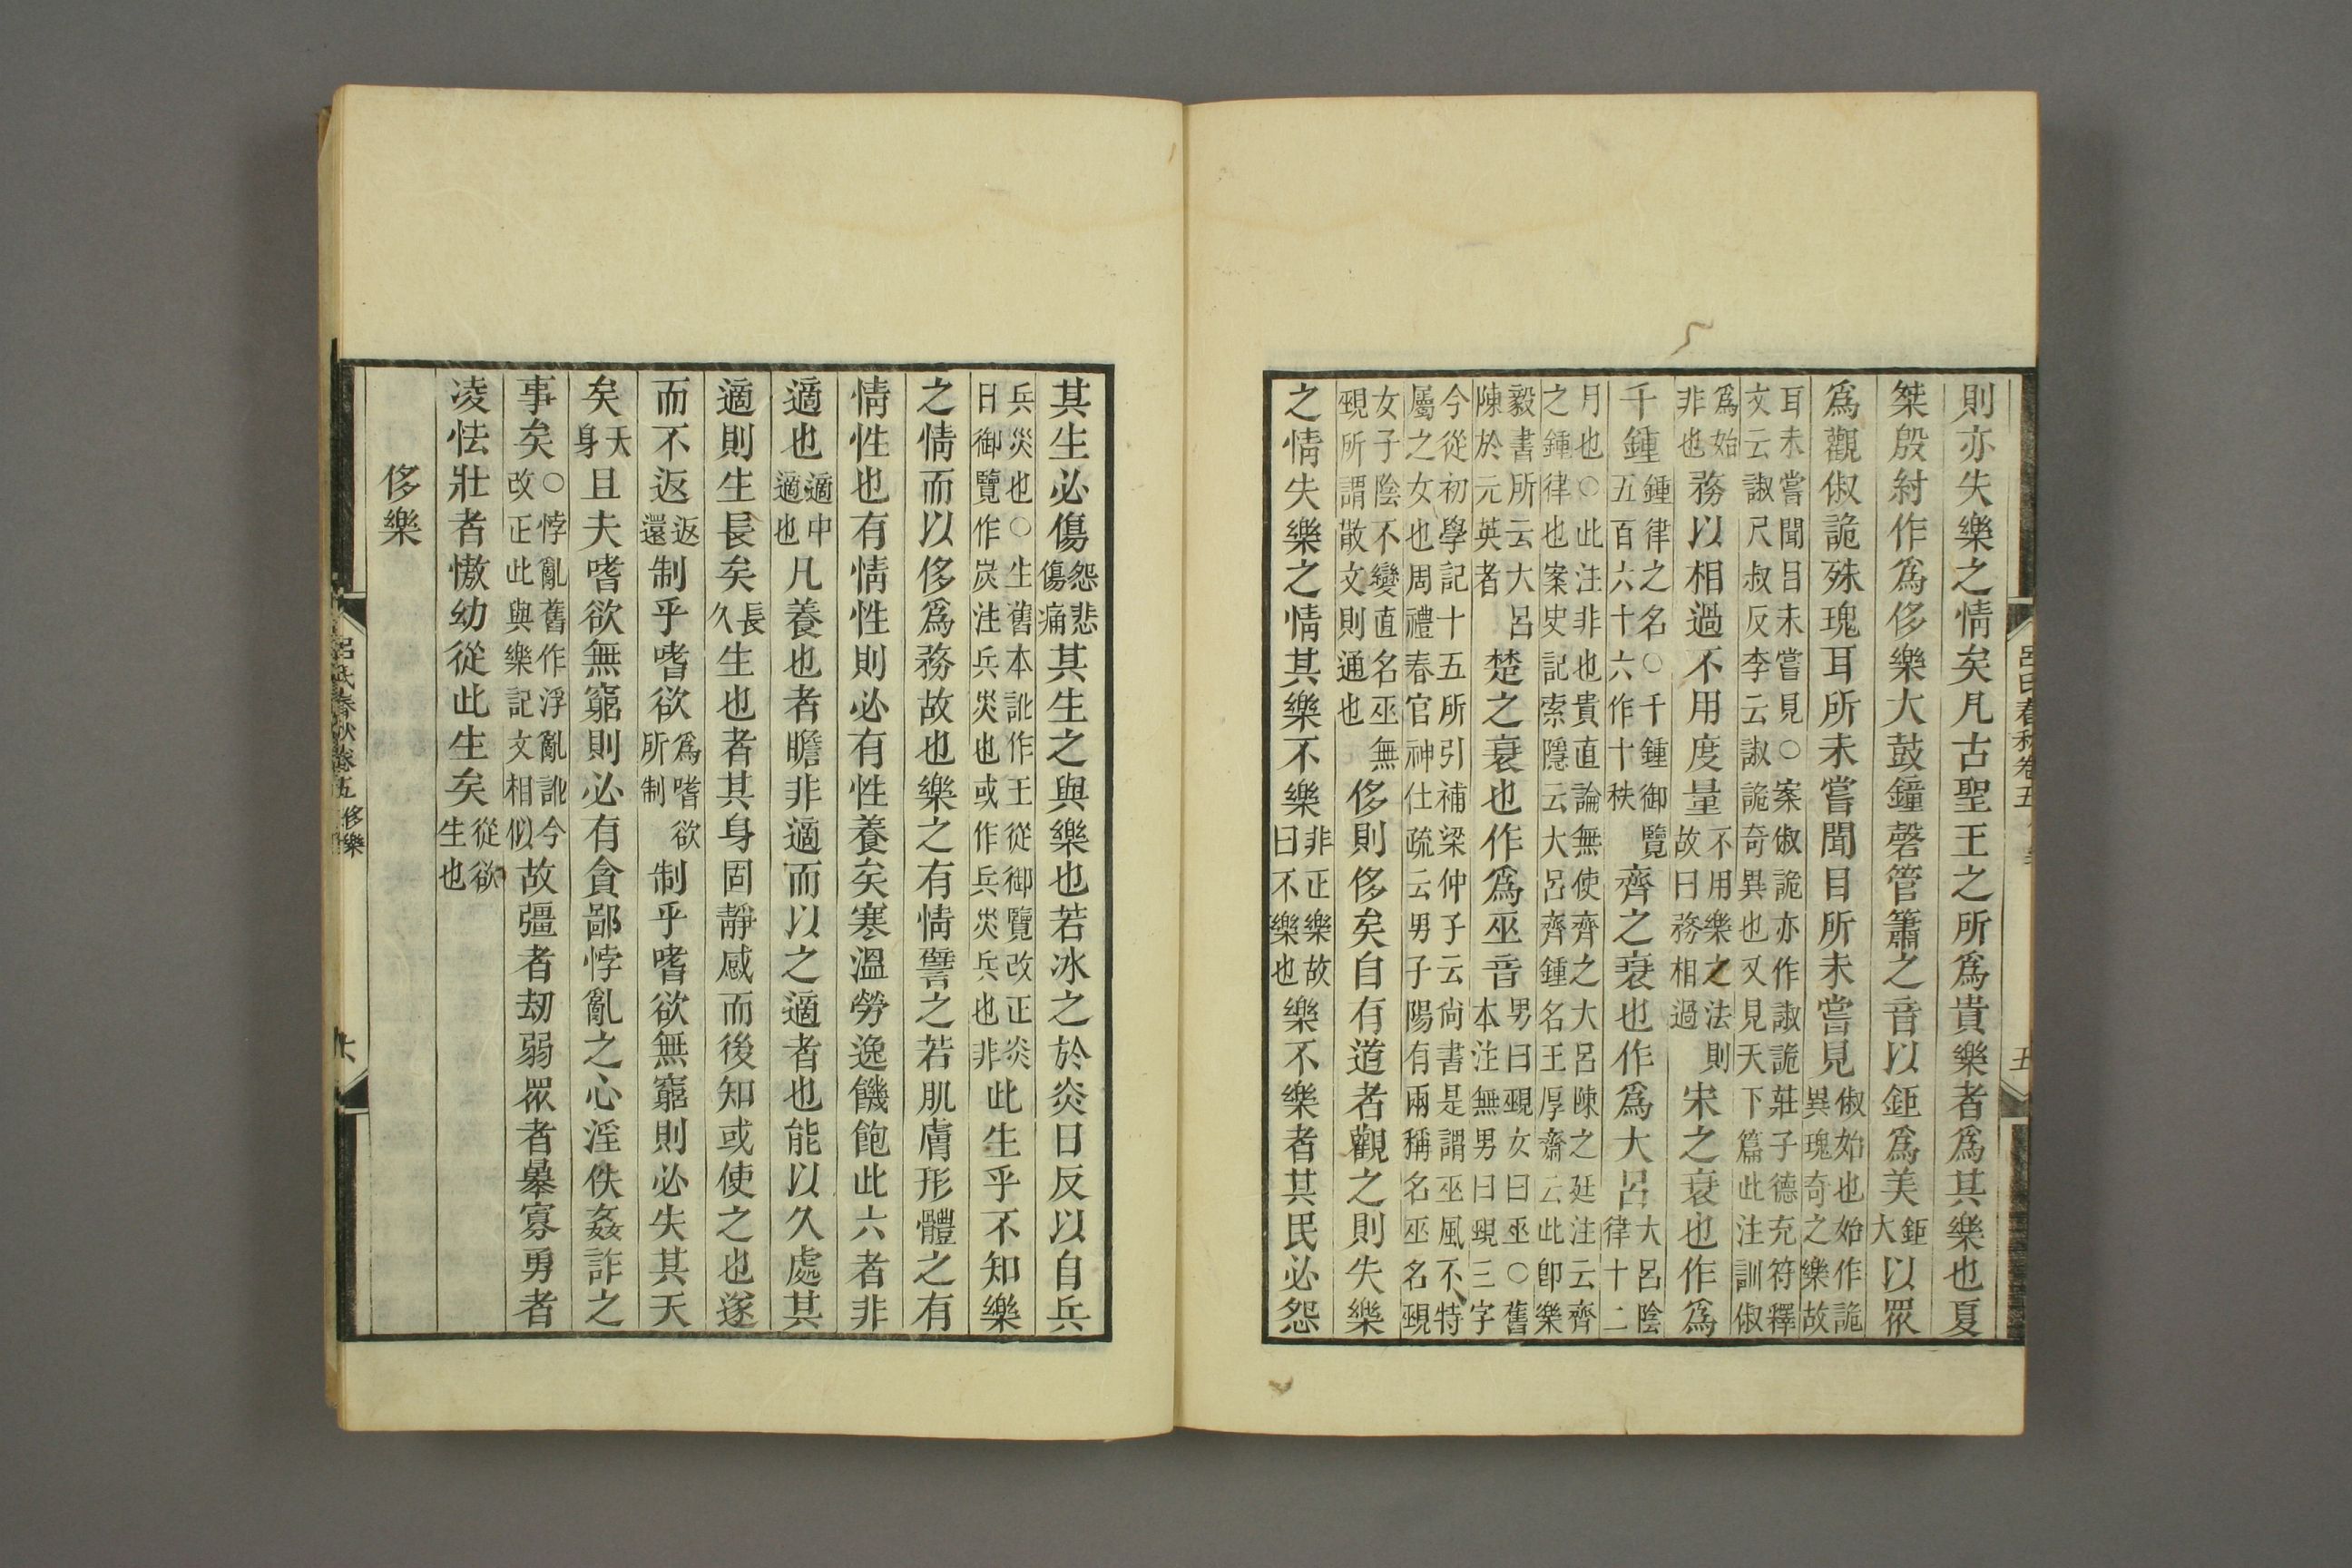 則亦失樂之情矣凡古聖王之所爲貴樂者爲其樂也夏
桀殷紂作爲侈樂大鼓鐘磬管簫之音以鉅爲美鉅大以眾
爲觀俶詭殊瑰耳所未嘗聞目所未嘗見俶始也始作詭異瑰奇之樂故
耳未嘗聞目未嘗見○案俶詭亦作諔詭莊子德充符釋文云諔尺叔反李云諔詭奇異也又見天下篇此注訓俶
爲始非也務以相過不用度量不用樂之法則故曰務相過宋之衰也作爲
千鍾鍾律之名○千鍾御覽五百六十六作十秩齊之衰也作爲大呂大呂陰律十二
月也○此注非也貴直論無使齊之大呂陳之廷注云齊之鍾律也案史記索隱云大呂齊鍾名王厚齋云此卽樂
毅書所云大呂陳於元英者楚之衰也作爲巫音男曰覡女曰巫○舊本注無男曰覡三字
今從初學記十五所引補梁仲子云尚書是謂巫風不特屬之女也周禮春官神仕疏云男子陽有兩稱名巫名覡
女子陰不變直名巫無覡所謂散文則通也侈則侈矣自有道者觀之則失樂
之情失樂之情其樂不樂非正樂故曰不樂也樂不樂者其民必怨
其生必傷怨悲傷痛其生之與樂也若冰之於炎日反以自兵
兵災也○生舊本訛作王從御覽改正炎日御覽作炭注兵災也或作兵炎兵也非此生乎不知樂
之情而以侈爲務故也樂之有情譬之若肌膚形體之有
情性也有情性則必有性養矣寒溫勞逸饑飽此六者非
適也適中適也凡養也者瞻非適而以之適者也能以久處其
適則生長矣長久生也者其身固靜感而後知或使之也遂
而不返返還制乎嗜欲爲嗜欲所制制乎嗜欲無窮則必失其天
矣天身且夫嗜欲無窮則必有貪鄙悖亂之心淫佚姦詐之
事矣○悖亂舊作浮亂訛今改正此與樂記文相似故彊者劫弱眾者暴寡勇者
凌怯壯者慠幼從此生矣從欲生也
侈樂
呂氏春秋卷五 侈樂 六
呂氏春秋卷五 五